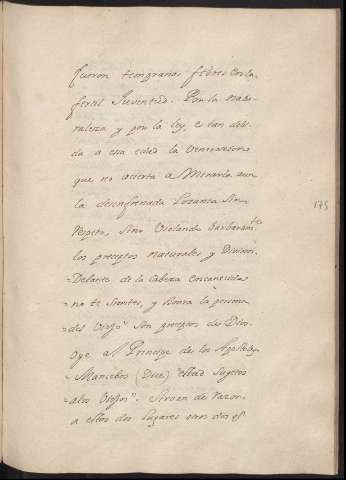 fueron tempranas flores en la
fertil Juventud. Por la natu-
raleza y por la ley, es tan debi-
da a esa edad la Veneracion
que no acierta a Mirarla aun
la desenfrenada Lozania sin
respeto, sino Violando barbaram.te
los preceptos naturales y Divinos.
Delante de la Cabeza encanecida
no te sientes, y honra la persona
del Viejo son preceptos de Dios.
Oye al Principe de los Apostoles,
Mancebos (Dice) estad Sugetos
a los Viejos". Sirven de razon
a estos dos lugares otros dos es
175